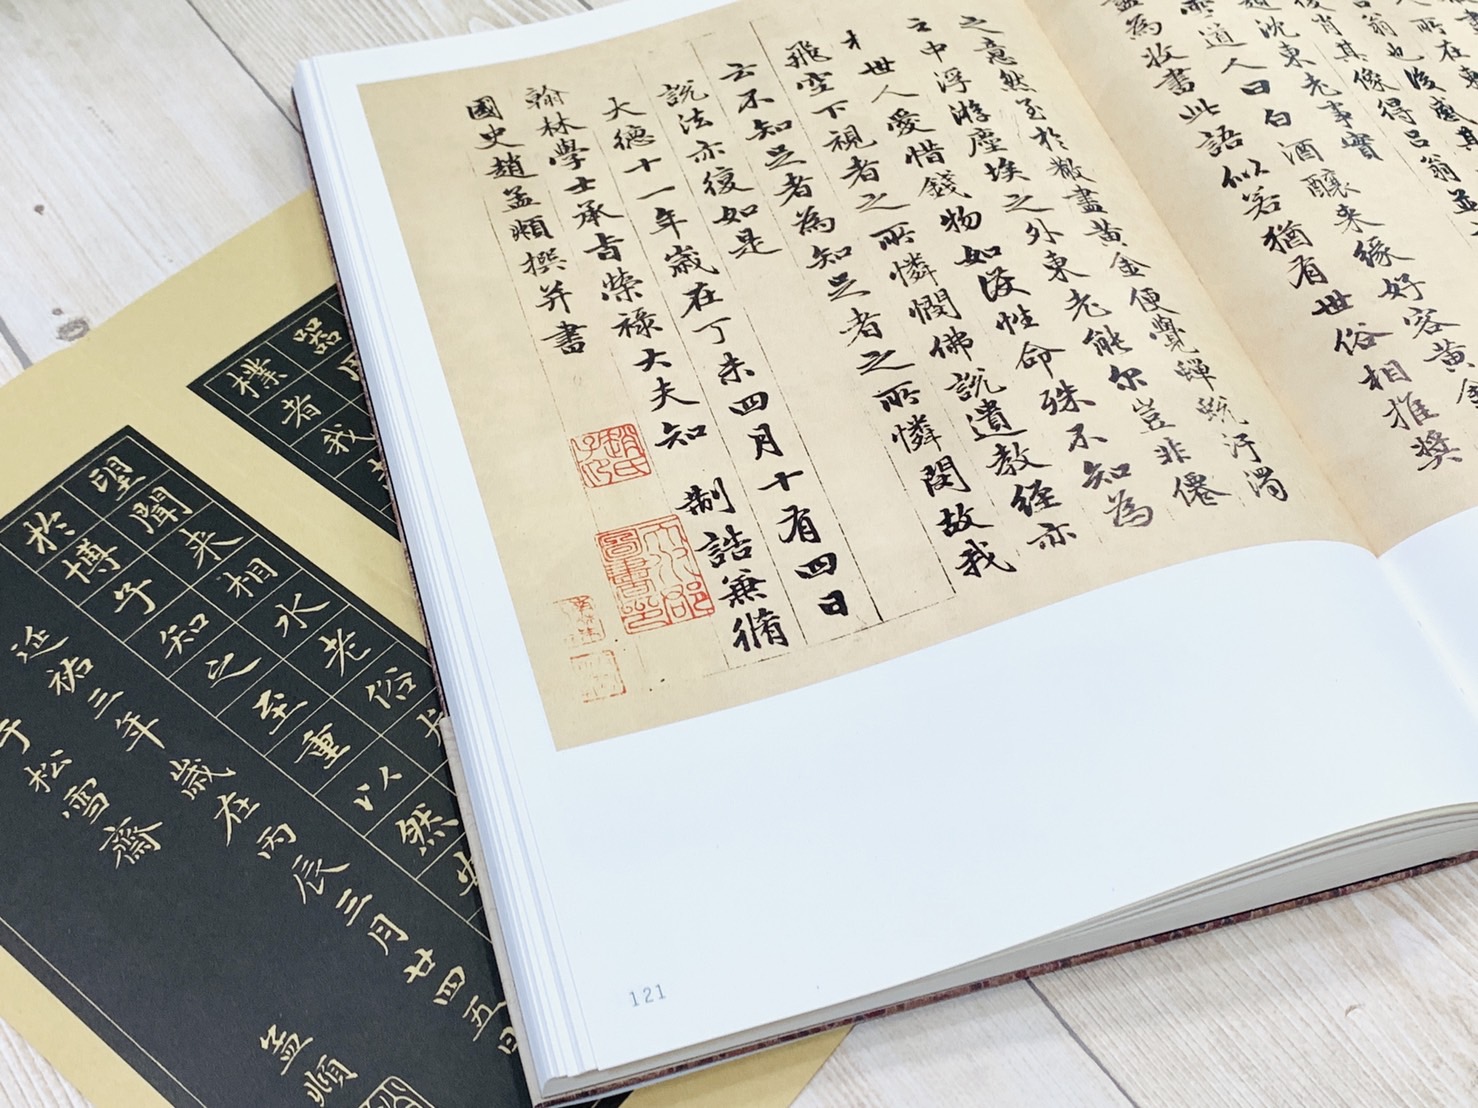 所在
呂翁也後感其
後肖其像得呂翁並
沈東老事實
道人曰白酒釀来緣好容黃金
盡為收書此語似若猶有世俗相推獎
之意然至於散盡黃金便覺蟬蛻汙濁
之中浮游塵埃之外東老能尔豈非僊
才世人愛惜錢物如護性命殊不知為
飛空下視者之所憐憫佛說遺教經亦
云不知足者為知足者之所憐閔故我
說法亦復如是
大德十一年歲在丁未四月十有四日
翰林學士承旨榮祿大夫知 制誥兼脩
國史趙孟頫撰并書
趙氏子昂
121
器
樸者我
望聞来相水老俗
於博子知之至重以然
延祐三年歲在丙辰三月廿四五日
于松雪齋
孟頫